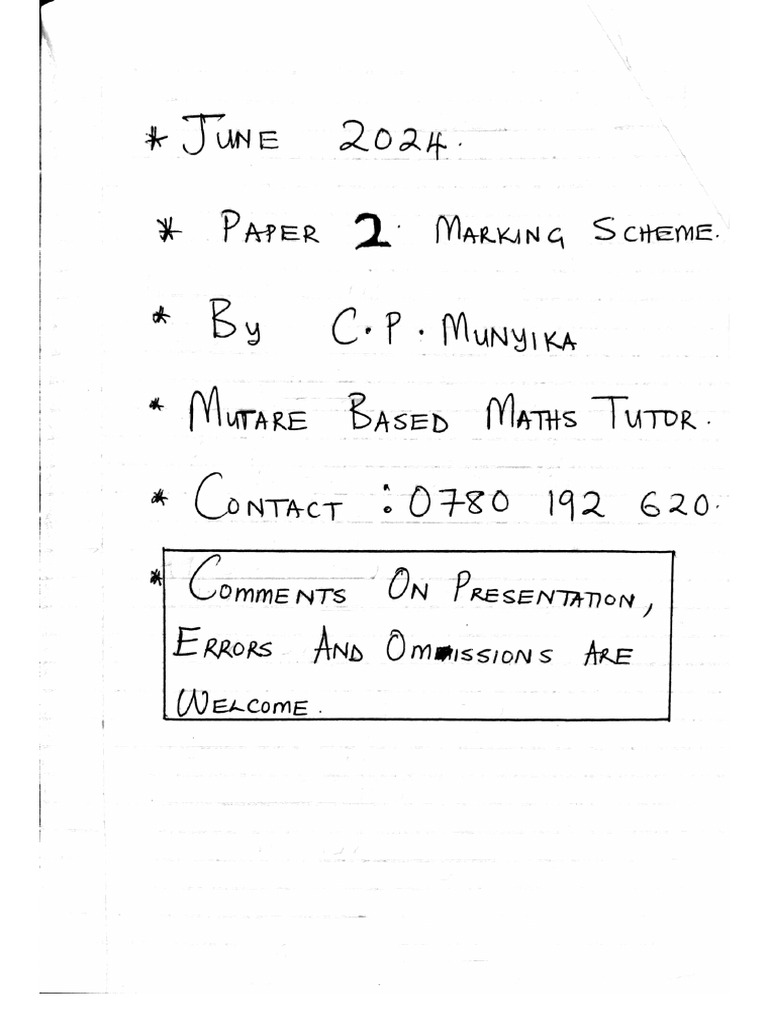 * JUNE 2024.
* PAPER 2. MARKING SCHEME.
* By C.P. MUNYIKA
* MUTARE BASED MATHS TUTOR.
* CONTACT : 0780 192 620.
* COMMENTS ON PRESENTATION,
ERRORS AND OMISSIONS ARE
WELCOME.